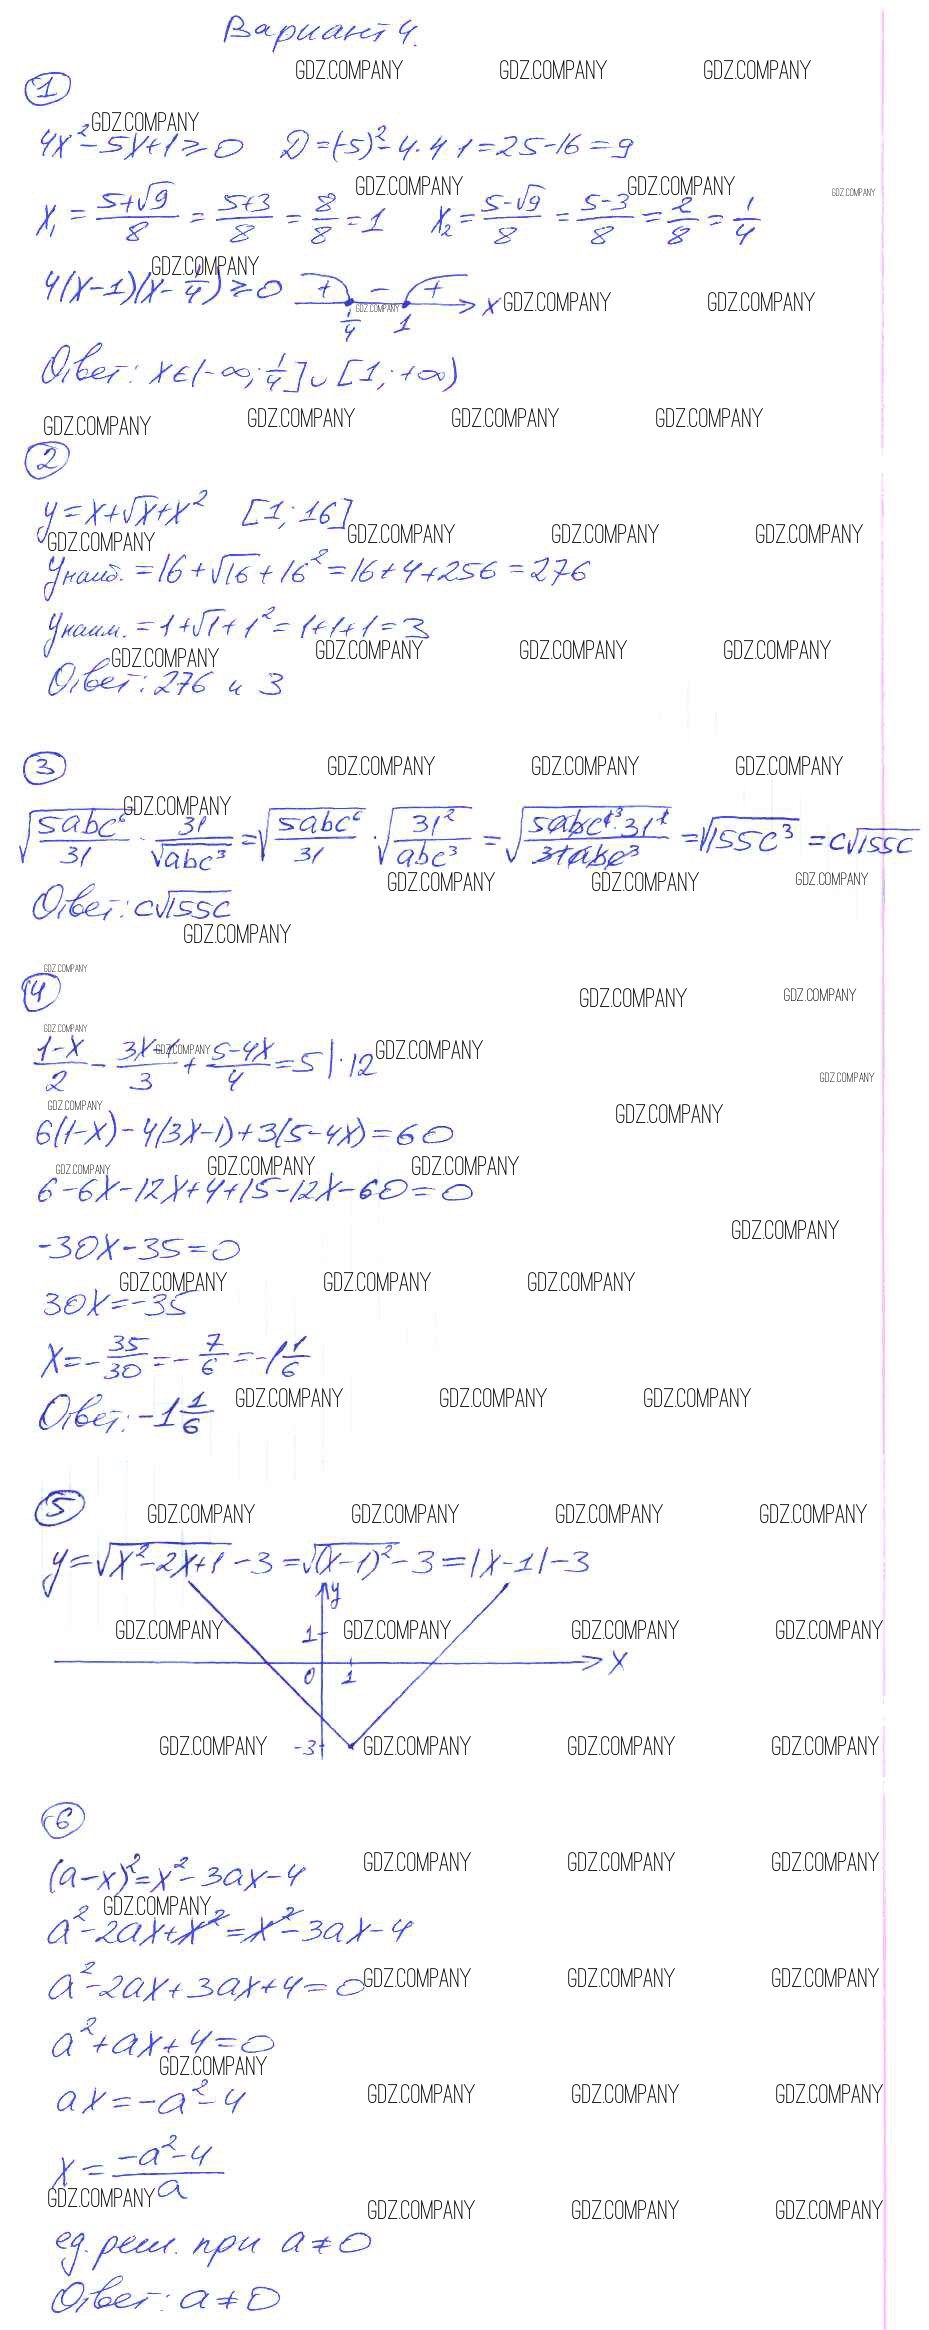 Вариант 4.
GDZ.COMPANY GDZ.COMPANY GDZ.COMPANY
1
GDZ.COMPANY
4x²-5x+1≥0 D=(-5)²-4·4·1=25-16=9
GDZ.COMPANY GDZ.COMPANY GDZ.COMPANY
x₁=(5+√9)/8=(5+3)/8=8/8=1 x₂=(5-√9)/8=(5-3)/8=2/8=1/4
GDZ.COMPANY
4(x-1)(x-1/4)≥0 + - + x GDZ.COMPANY GDZ.COMPANY
GDZ.COMPANY
1/4 1
Ответ: x∈(-∞; 1/4]∪[1; +∞)
GDZ.COMPANY GDZ.COMPANY GDZ.COMPANY GDZ.COMPANY
2
y=x+√x+x² [1; 16]
GDZ.COMPANY GDZ.COMPANY GDZ.COMPANY GDZ.COMPANY
yнаиб.=16+√16+16²=16+4+256=276
yнаим.=1+√1+1²=1+1+1=3
GDZ.COMPANY GDZ.COMPANY GDZ.COMPANY GDZ.COMPANY
Ответ: 276 и 3
3
GDZ.COMPANY GDZ.COMPANY GDZ.COMPANY
GDZ.COMPANY
√(5abc⁶/31)·31/√(abc³)=√(5abc⁶/31)·√(31²/abc³)=√(5abc⁶·31²/31abc³)=√155c³=c√155c
GDZ.COMPANY GDZ.COMPANY GDZ.COMPANY
Ответ: c√155c
GDZ.COMPANY
GDZ.COMPANY
4
GDZ.COMPANY GDZ.COMPANY
GDZ.COMPANY
(1-x)/2-(3x-1)/3+(5-4x)/4=5 |·12
GDZ.COMPANY GDZ.COMPANY
GDZ.COMPANY
GDZ.COMPANY GDZ.COMPANY
6(1-x)-4(3x-1)+3(5-4x)=60
GDZ.COMPANY GDZ.COMPANY GDZ.COMPANY
6-6x-12x+4+15-12x-60=0
GDZ.COMPANY
-30x-35=0
GDZ.COMPANY GDZ.COMPANY GDZ.COMPANY
30x=-35
x=-35/30=-7/6=-1 1/6
GDZ.COMPANY GDZ.COMPANY GDZ.COMPANY
Ответ: -1 1/6
5
GDZ.COMPANY GDZ.COMPANY GDZ.COMPANY GDZ.COMPANY
y=√(x²-2x+1)-3=√((x-1)²)-3=|x-1|-3
y
GDZ.COMPANY 1 GDZ.COMPANY GDZ.COMPANY GDZ.COMPANY
0 1 x
GDZ.COMPANY -3 GDZ.COMPANY GDZ.COMPANY GDZ.COMPANY
6
GDZ.COMPANY GDZ.COMPANY GDZ.COMPANY
(a-x)²=x²-3ax-4
GDZ.COMPANY
a²-2ax+x²=x²-3ax-4
GDZ.COMPANY GDZ.COMPANY GDZ.COMPANY
a²-2ax+3ax+4=0
a²+ax+4=0
GDZ.COMPANY
GDZ.COMPANY GDZ.COMPANY GDZ.COMPANY
ax=-a²-4
x=(-a²-4)/a
GDZ.COMPANY GDZ.COMPANY GDZ.COMPANY GDZ.COMPANY
ед. реш. при a≠0
Ответ: a≠0